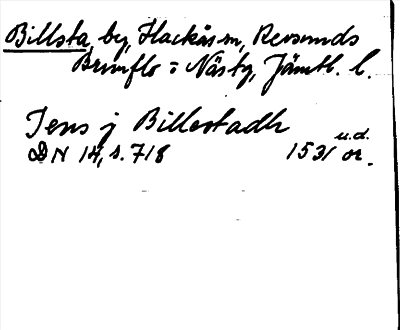 Billsta, by, Hackås sn, Revsunds
Brunflo o Näs tg, Jämtl. l.
Jens j Billestadh
DN 14, s. 718 1531 u.d. or.